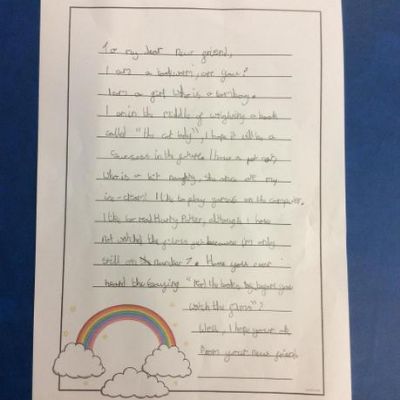 To my dear new friend,
I am a bookworm, are you?
I am a girl who is a tomboy.
I am in the middle of weighing a book
called "the cat lady", I hope it will be a
Sucsess in the future. I have a pet cat,
who is a bit naughty, she once ate my
ice-cream! I like to play games on the computer.
I like to read Harry Potter, although I have
not watched the films yet because I'm only
still on number 7. Have you ever
heard the saying "Read the books before you
watch the films"?
Well, I hope your ok
From your new friend